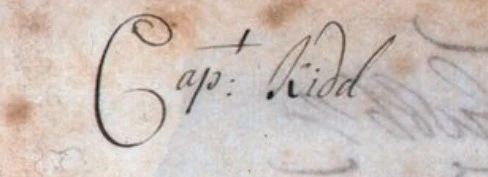 Cap:t Kidd